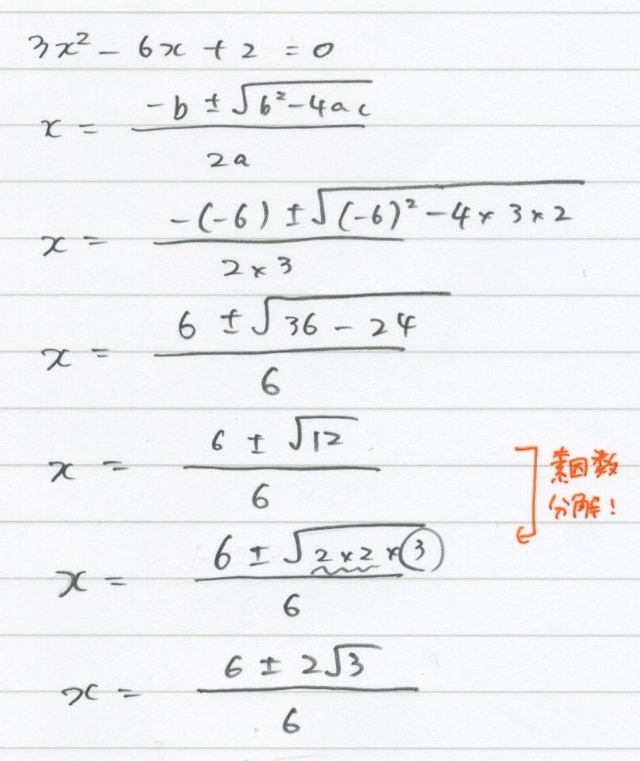 3x² - 6x + 2 = 0
x = (-b ± √(b² - 4ac)) / 2a
x = (-(-6) ± √((-6)² - 4 × 3 × 2)) / (2 × 3)
x = (6 ± √(36 - 24)) / 6
x = (6 ± √12) / 6
素因数
分解!
x = (6 ± √(2 × 2 × 3)) / 6
x = (6 ± 2√3) / 6